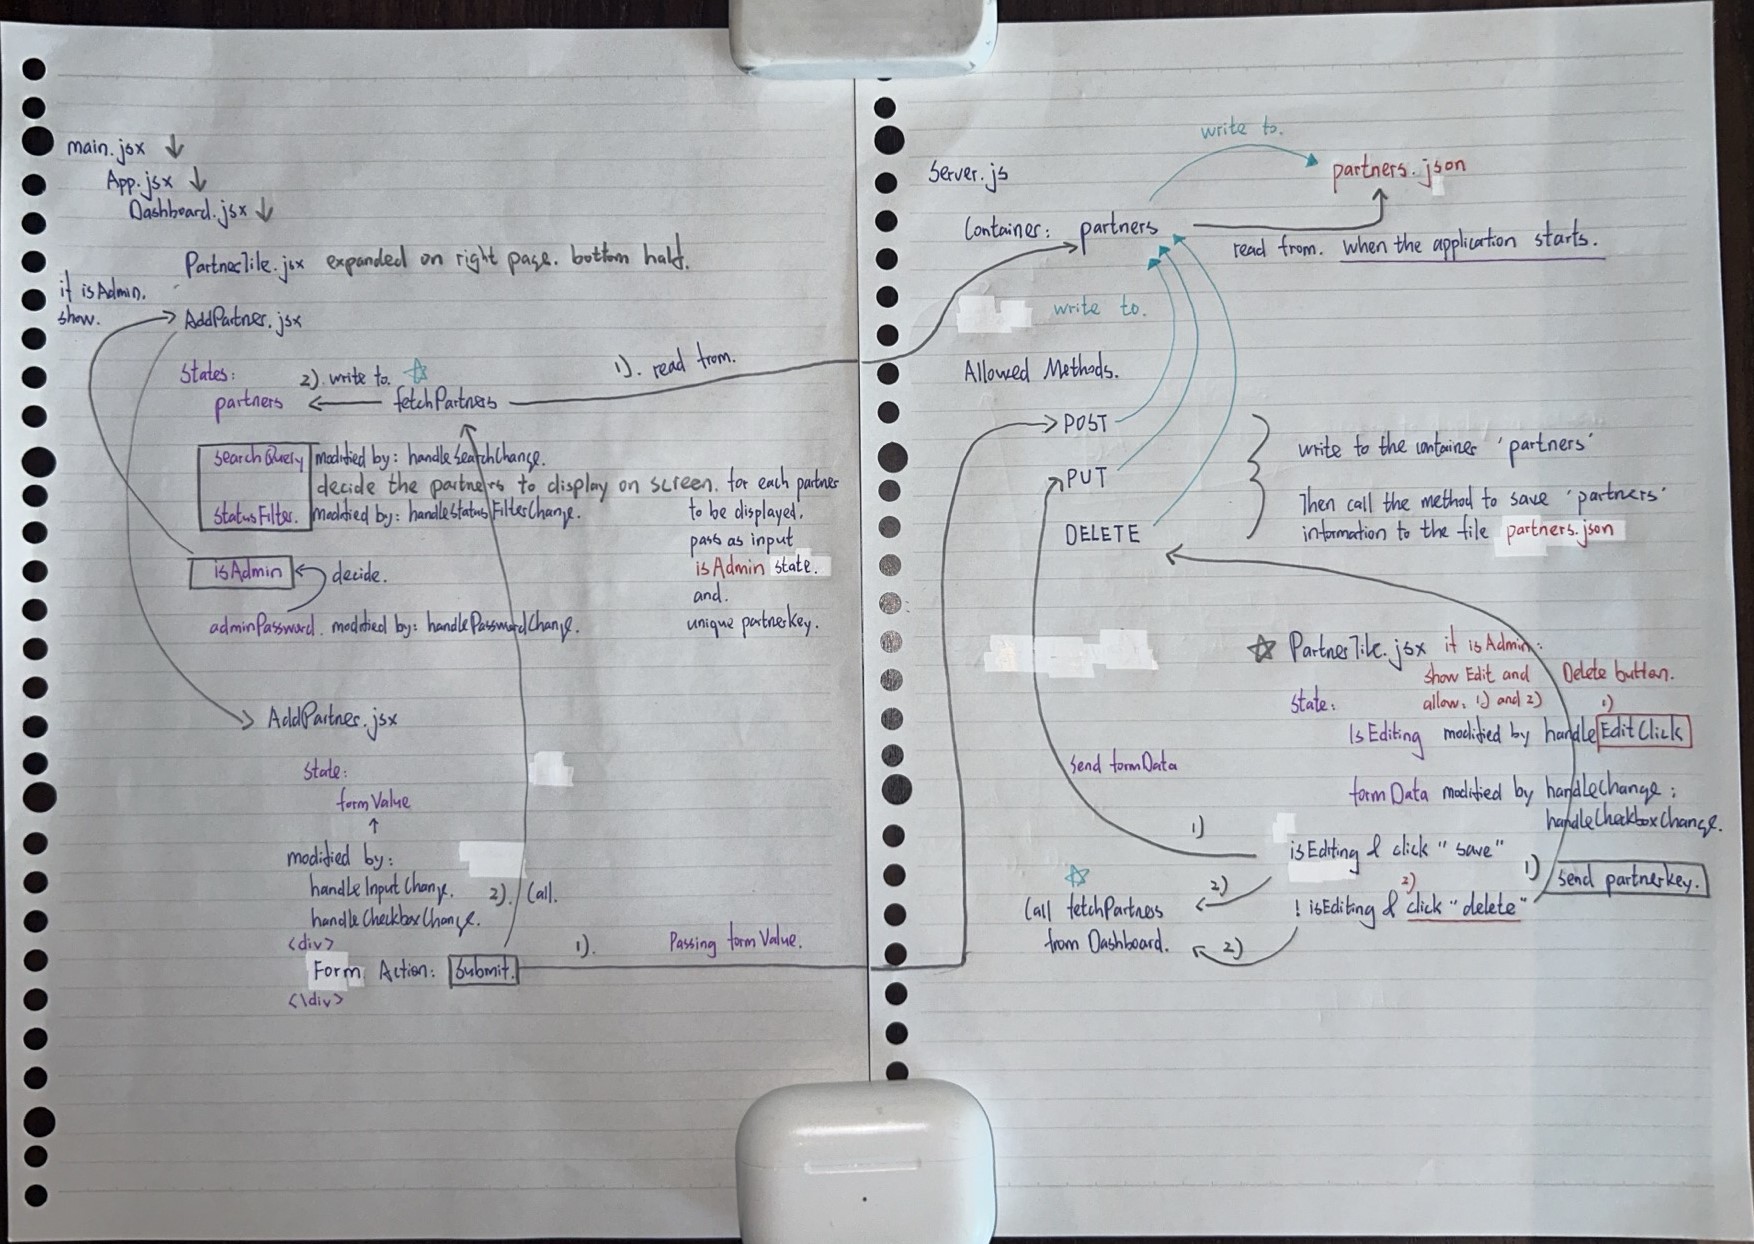 main.jsx ↓
App.jsx ↓
Dashboard.jsx ↓
PartnerTile.jsx expanded on right page. bottom half.
if isAdmin.
show.
AddPartner.jsx
States:
2). write to. ☆
1). read from.
partners ← fetchPartners
SearchQuery modified by: handleSearchChange.
decide the partners to display on screen. for each partner
StatusFilter. modified by: handleStatusFilterChange.
to be displayed,
pass as input
isAdmin state.
and.
unique partnerkey.
isAdmin decide.
adminPassword. modified by: handlePasswordChange.
AddPartner.jsx
State:
formValue
↑
modified by:
handleInputChange.
handleCheckboxChange.
2). Call.
<div>
Form Action: Submit.
<\div>
1). Passing formValue.
Server.js
write to.
partners.json
Container: partners
read from. when the application starts.
write to.
Allowed Methods.
POST
PUT
DELETE
write to the container 'partners'
Then call the method to save 'partners'
information to the file partners.json
☆ PartnerTile.jsx if isAdmin:
show Edit and Delete button.
allow: 1) and 2)
State:
1)
IsEditing modified by handleEditClick
Send formData
formData modified by handleChange;
handleCheckboxChange.
1)
isEditing & click "save"
1) Send partnerkey.
2)
! isEditing & click "delete"
2)
☆
Call fetchPartners
from Dashboard.
2)